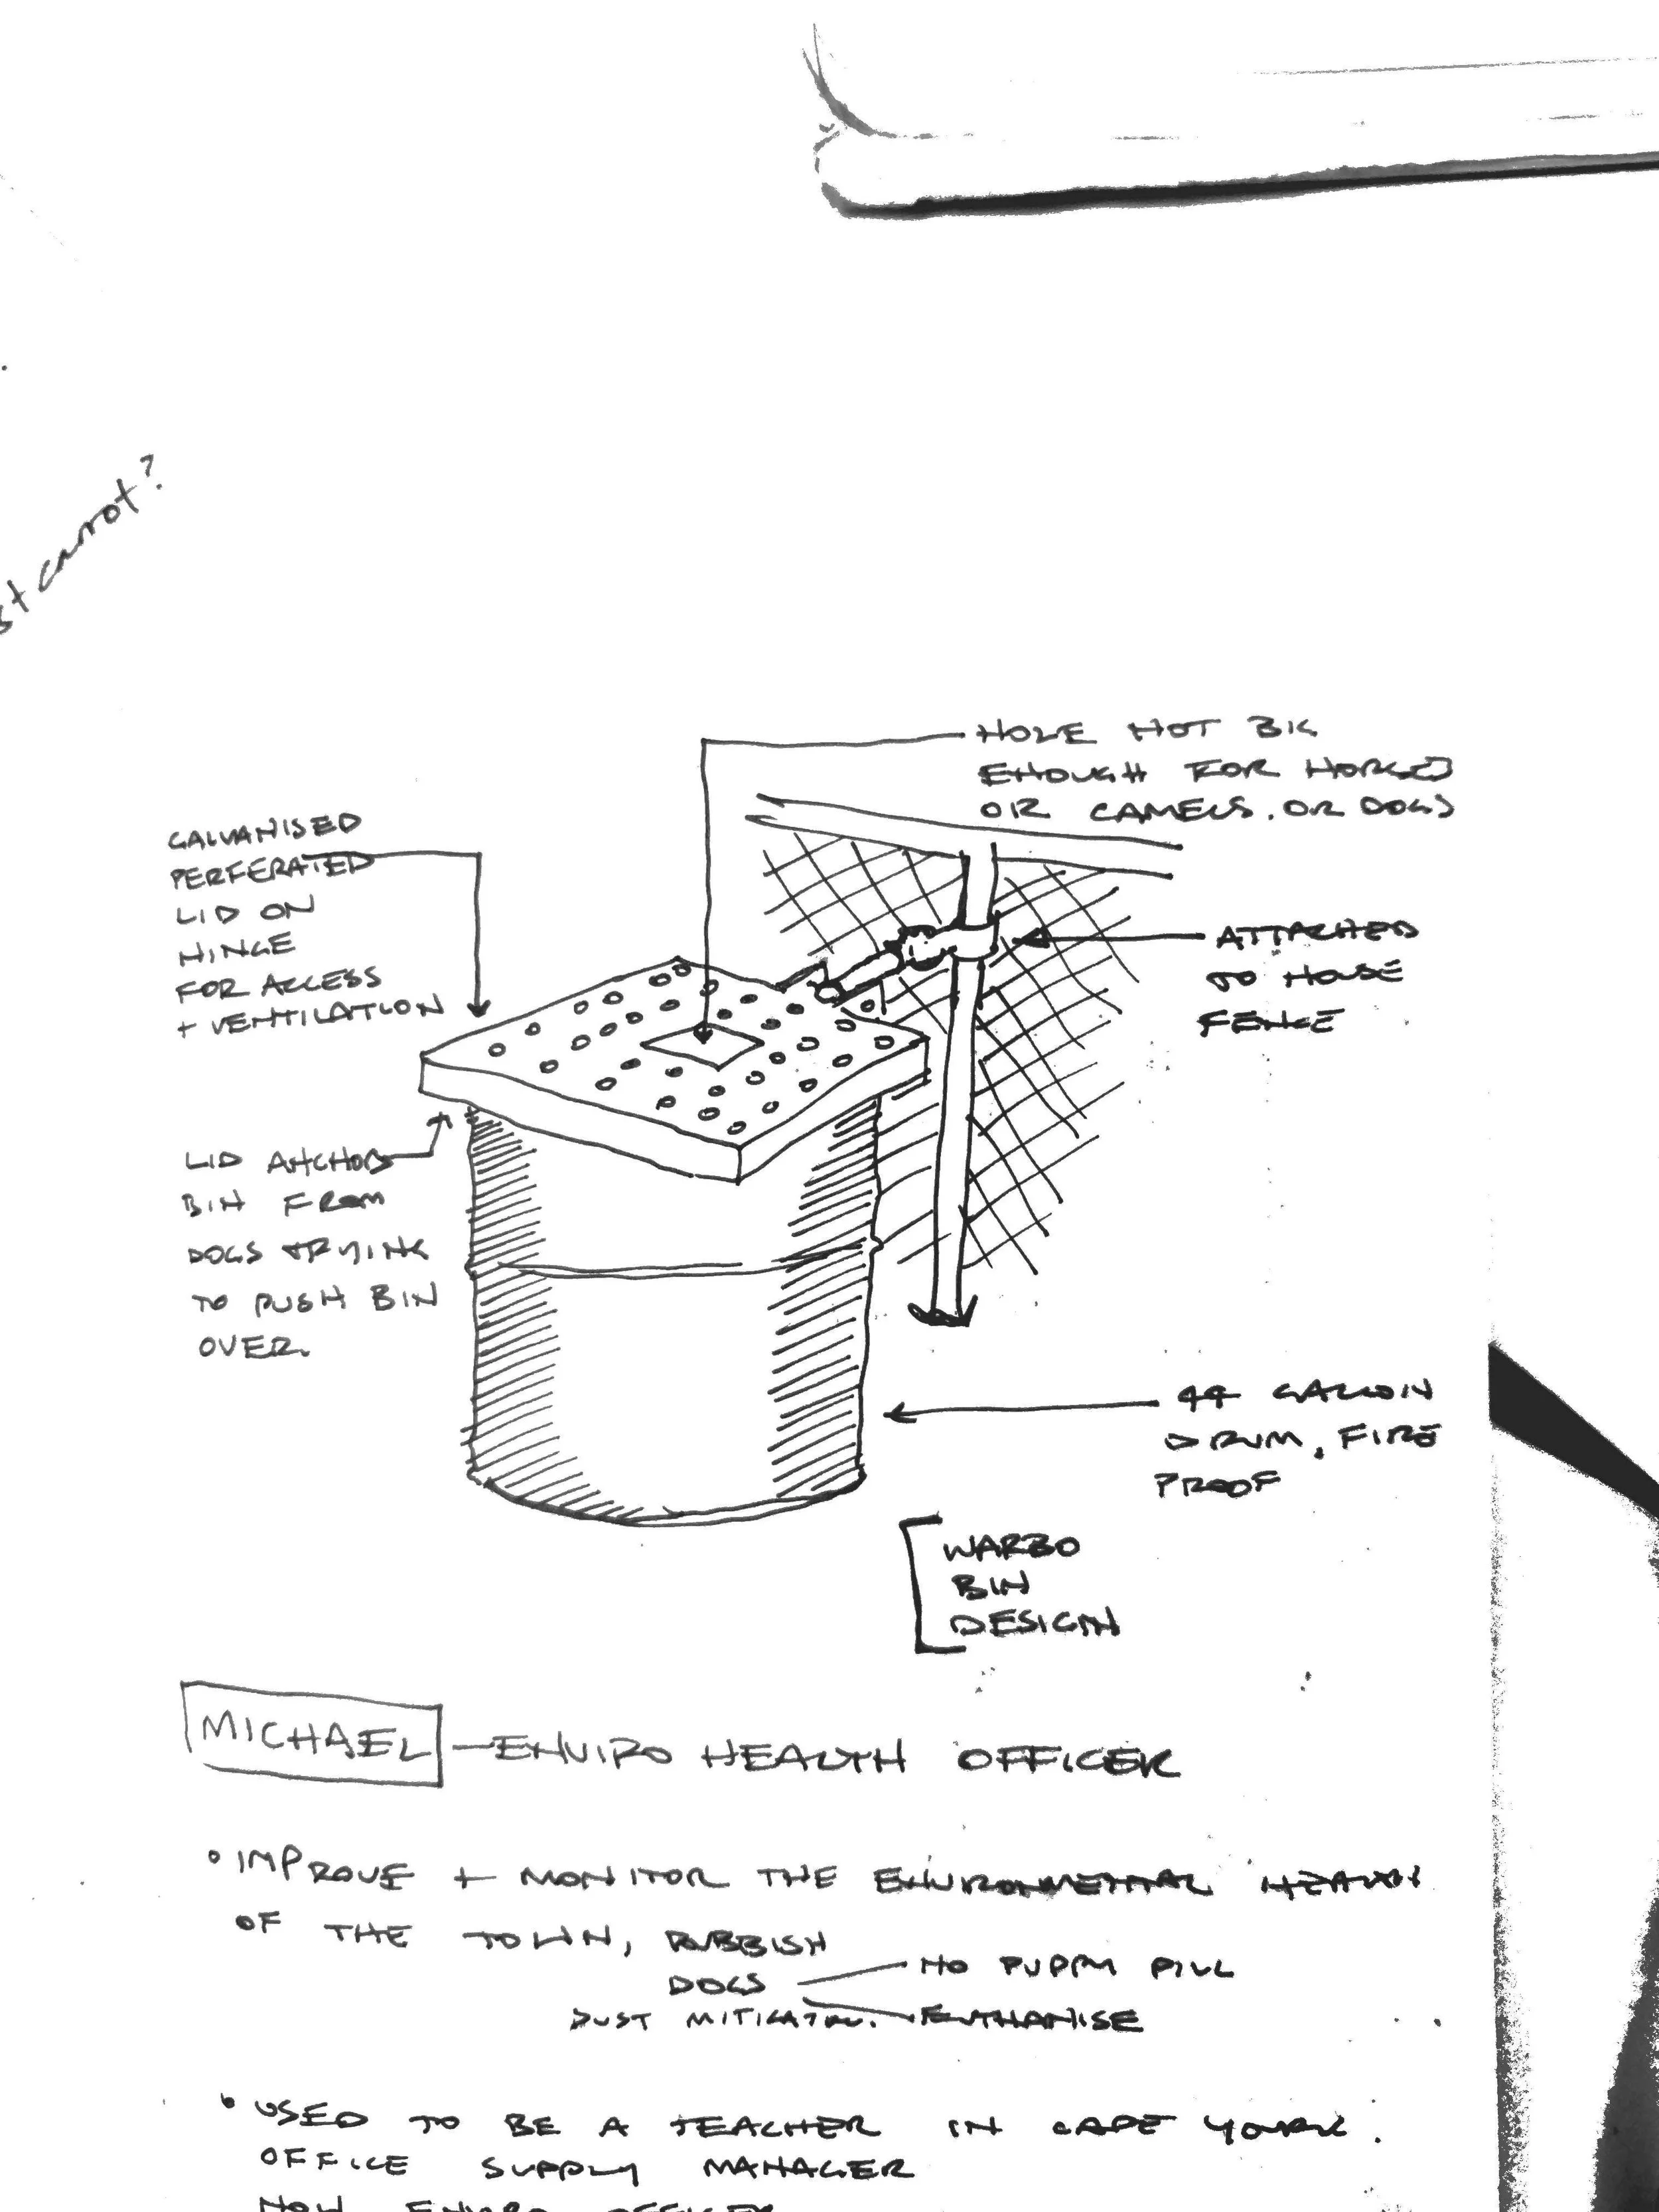 st carrot?
HOLE NOT BIG
ENOUGH FOR HORSES
OR CAMELS. OR DOGS
GALVANISED
PERFERATED
LID ON
HINGE
FOR ACCESS
+ VENTILATION
ATTACHED
TO HOUSE
FENCE
LID ANCHORS
BIN FROM
DOGS TRYING
TO PUSH BIN
OVER.
44 GALLON
DRUM, FIRE
PROOF
WARBO
BIN
DESIGN
MICHAEL — ENVIRO HEALTH OFFICER
• IMPROVE + MONITOR THE ENVIRONMENTAL HEALTH
OF THE TOWN, RUBBISH
DOGS — NO PUPPY PILL
DUST MITIGATION. — EUTHANISE
• USED TO BE A TEACHER IN CAPE YORK.
OFFICE SUPPLY MANAGER
NOW ENVIRO OFFICER